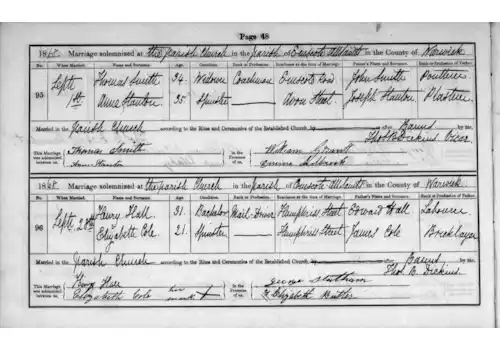 Page 48
18 Marriage solemnized at the Parish Church in the Parish of Emscote All Saints in the County of Warwick
No. When Married. Name and Surname. Age. Condition. Rank or Profession. Residence at the time of Marriage. Father's Name and Surname. Rank or Profession of Father.
95 Sept 1st Thomas Smith 34 Widower Coachman Emscote Row John Smith Poulterer
Anna Staunton 35 Spinster Avon Street Joseph Staunton Plasterer
Married in the Parish Church according to the Rites and Ceremonies of the Established Church, by after Banns by me,
Thos B Dickins Vicar
This Marriage was solemnized between us, Thomas Smith in the Presence of us, William Grant
Anna Staunton Emma
18 Marriage solemnized at the Parish Church in the Parish of Emscote All Saints in the County of Warwick
No. When Married. Name and Surname. Age. Condition. Rank or Profession. Residence at the time of Marriage. Father's Name and Surname. Rank or Profession of Father.
96 Sept 28th Henry Hall 31 Bachelor Mail Driver Humphriss Street Edward Hall Labourer
Elizabeth Cole 21 Spinster Humphriss Street James Cole Bricklayer
Married in the Parish Church according to the Rites and Ceremonies of the Established Church, by after Banns by me,
Thos. B. Dickins
This Marriage was solemnized between us, Henry Hall in the Presence of us, George Statham
Elizabeth Cole her mark X Elizabeth Butler